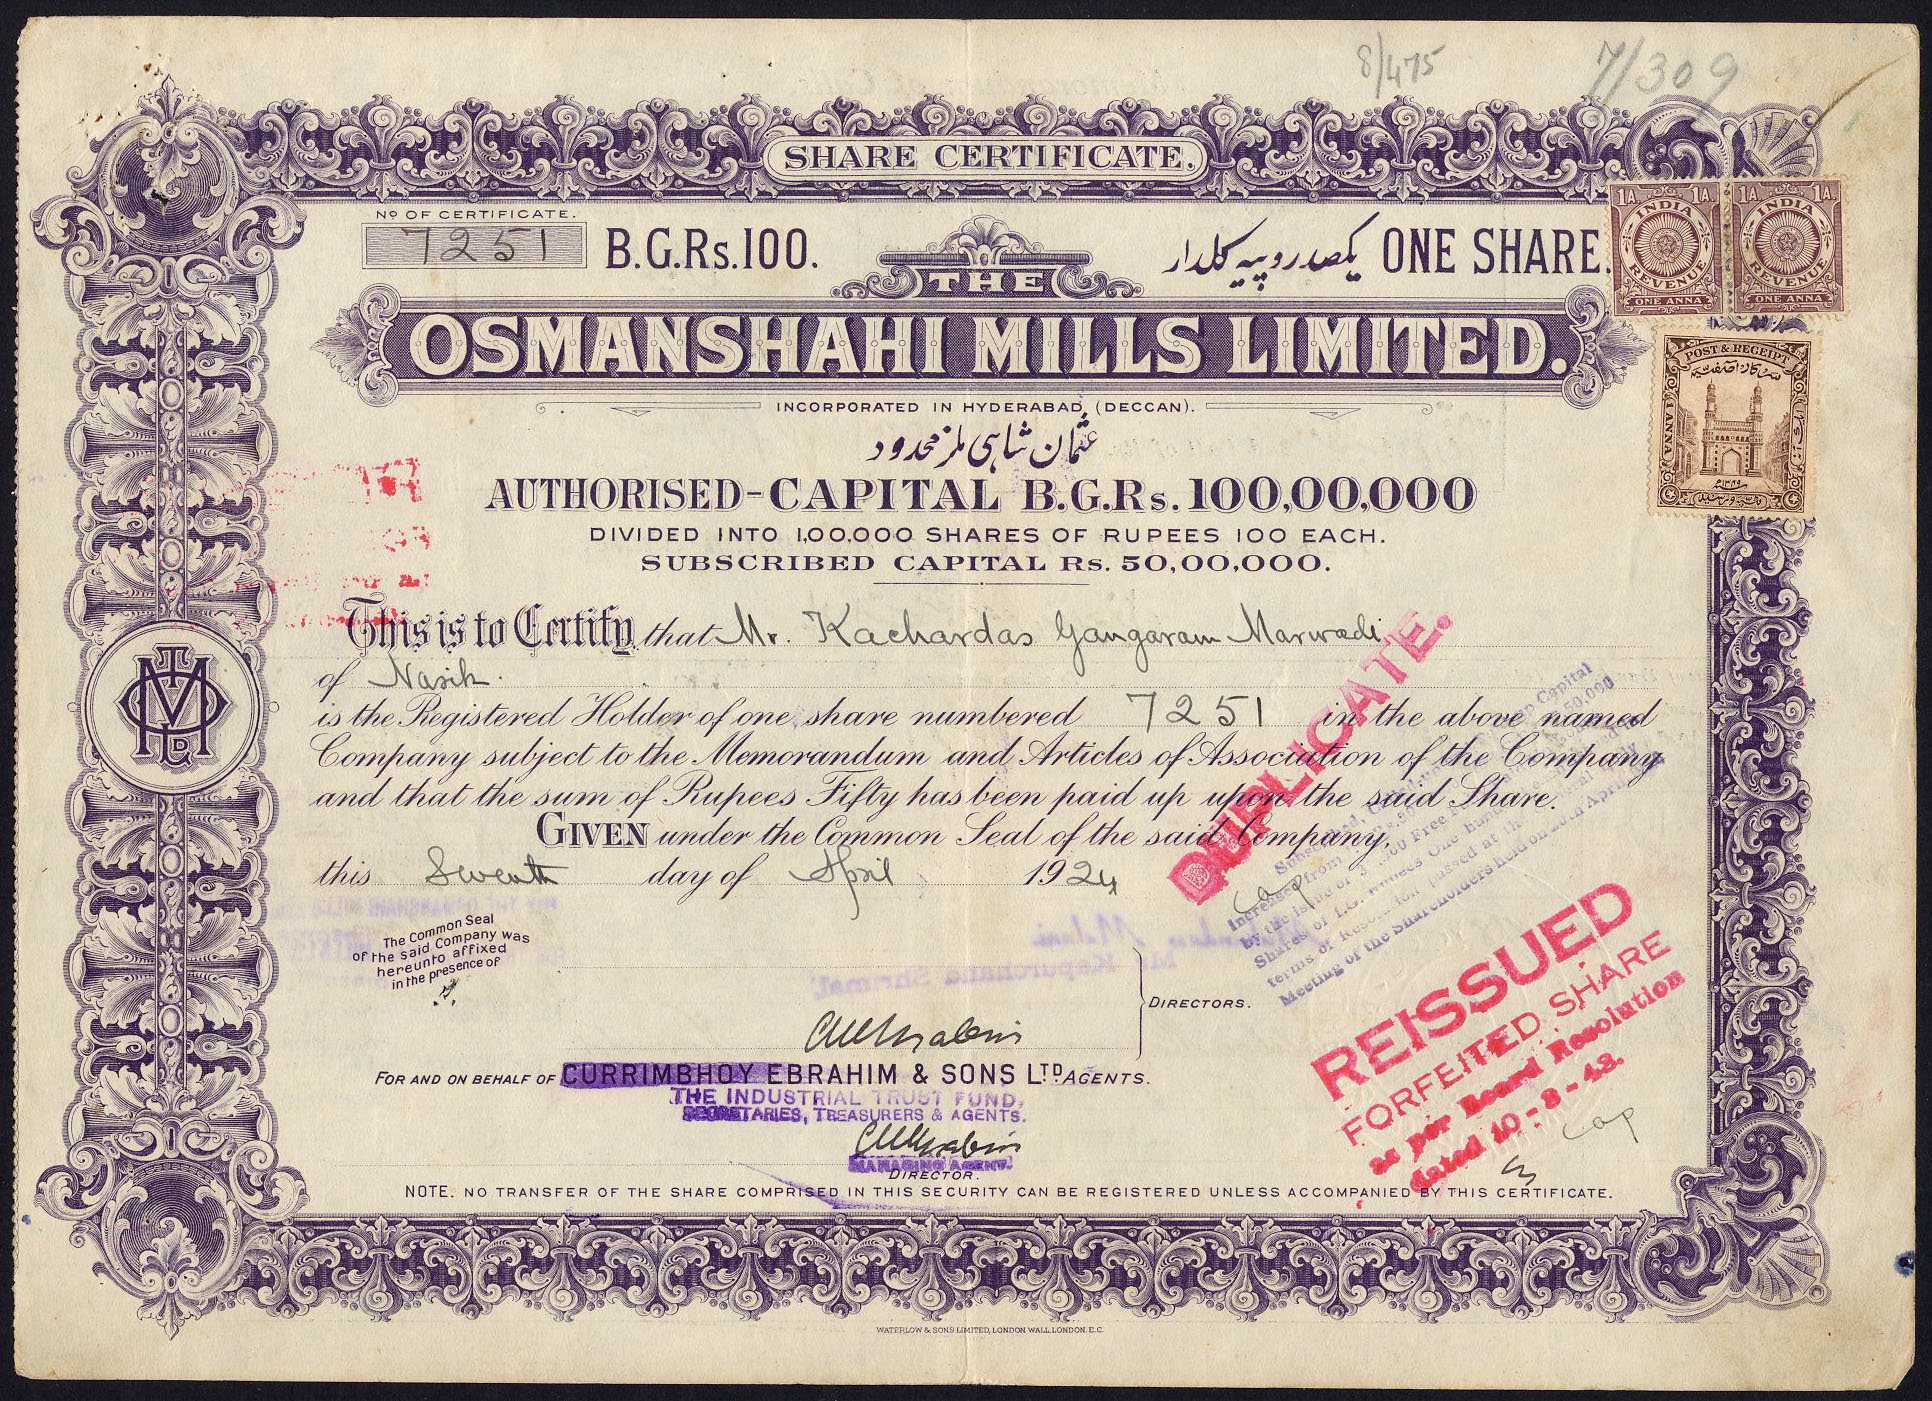 8/475
7/309
SHARE CERTIFICATE.
Nº OF CERTIFICATE.
7251
B.G.Rs.100.
یکصد روپیہ کلدار
ONE SHARE.
1A. 1A. 1A. 1A.
INDIA INDIA
REVENUE REVENUE
ONE ANNA ONE ANNA
THE
OSMANSHAHI MILLS LIMITED.
POST & RECEIPT
1 ANNA
INCORPORATED IN HYDERABAD, (DECCAN).
عثمان شاہی ملز محدود
AUTHORISED-CAPITAL B.G.Rs. 100,00,000
DIVIDED INTO 1,00,000 SHARES OF RUPEES 100 EACH.
SUBSCRIBED CAPITAL Rs. 50,00,000.
This is to Certify that Mr. Kachardas Gangaram Marwadi
of Nasik.
is the Registered Holder of one share numbered 7251 in the above named
Company subject to the Memorandum and Articles of Association of the Company
and that the sum of Rupees Fifty has been paid up upon the said Share.
GIVEN under the Common Seal of the said Company,
this Seventh day of April 1924
DUPLICATE.
The Common Seal
of the said Company was
hereunto affixed
in the presence of
DIRECTORS.
Meeting of the Shareholders held on 20th April
REISSUED
FORFEITED SHARE
as per Board Resolution
dated 10-8-48.
FOR AND ON BEHALF OF CURRIMBHOY EBRAHIM & SONS LTD. AGENTS.
THE INDUSTRIAL TRUST FUND,
SECRETARIES, TREASURERS & AGENTS.
MANAGING AGENT.
DIRECTOR.
NOTE. NO TRANSFER OF THE SHARE COMPRISED IN THIS SECURITY CAN BE REGISTERED UNLESS ACCOMPANIED BY THIS CERTIFICATE.
WATERLOW & SONS LIMITED, LONDON WALL, LONDON. E.C.